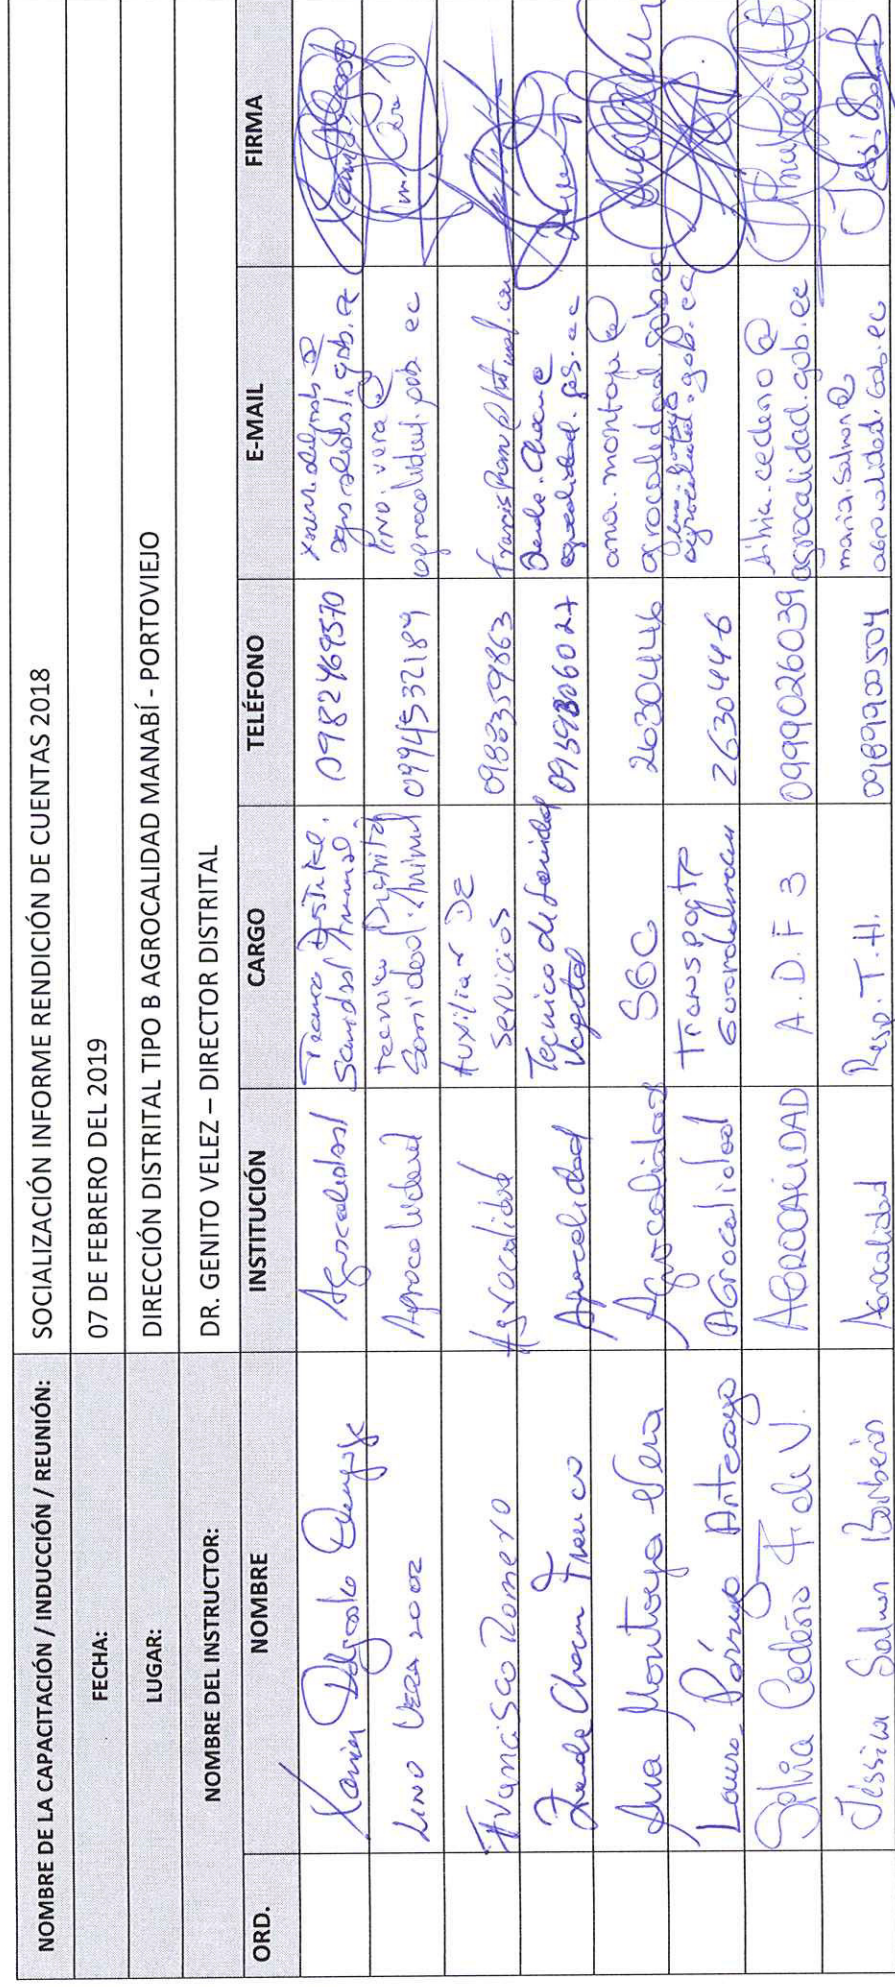 NOMBRE DE LA CAPACITACIÓN / INDUCCIÓN / REUNIÓN: SOCIALIZACIÓN INFORME RENDICIÓN DE CUENTAS 2018
FECHA: 07 DE FEBRERO DEL 2019
LUGAR: DIRECCIÓN DISTRITAL TIPO B AGROCALIDAD MANABÍ - PORTOVIEJO
NOMBRE DEL INSTRUCTOR: DR. GENITO VELEZ – DIRECTOR DISTRITAL
ORD. NOMBRE INSTITUCIÓN CARGO TELÉFONO E-MAIL FIRMA
Xavier Delgado Agrocalidad 0982469570
Lino Vera Agrocalidad Tecnico Distrital Sanidad Animal 0994532189 lino.vera@
agrocalidad.gob.ec
Francisco Romero Agrocalidad Auxiliar DE 0983359863
Servicios
Chacon Franco Agrocalidad Tecnico de Sanidad
Vegetal
Ana Montoya Vera Agrocalidad SGC 2630446 ana.montoya@
agrocalidad.gob.ec
Lauro Párraga Arteaga AGrocalidad Transporte 2630446
Guardalmacen agrocalidad.gob.ec
Silvia Cedeño F. de V. AGROCALIDAD A.D.F 3 0999026039 silvia.cedeno@
agrocalidad.gob.ec
Jessica Salmon Barberis Agrocalidad Resp. T.H. 0989900504 maria.salmon@
agrocalidad.gob.ec